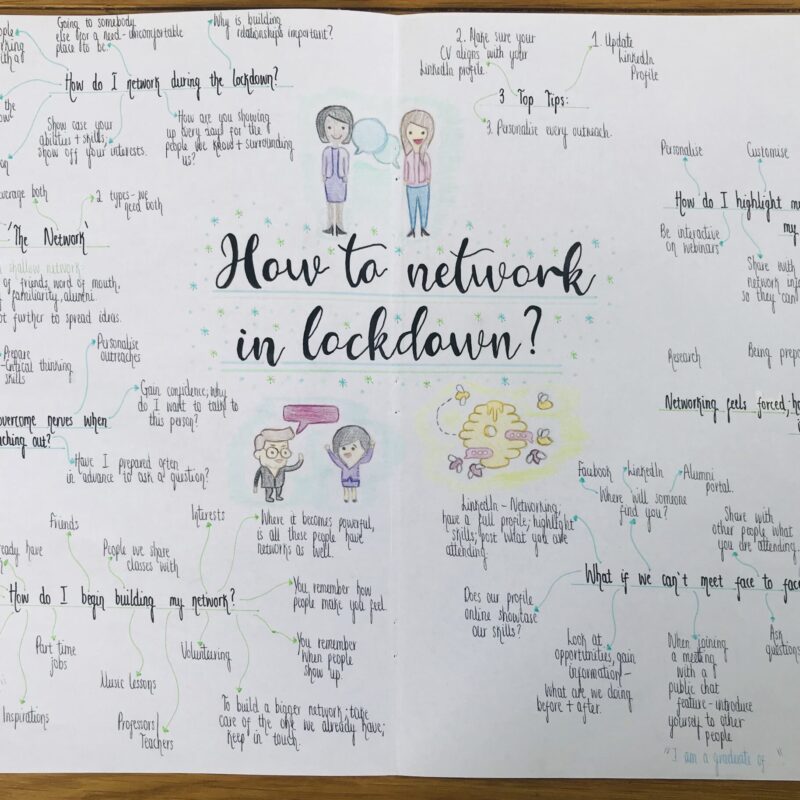 Going to somebody
else for a need - uncomfortable
place to be.
Why is building
relationships important?
How do I network during the lockdown?
the
Show case your
abilities + skills,
show off your interests.
How are you showing
up every day for the
people we know + surrounding
us?
2. Make sure your
CV aligns with your
LinkedIn profile
1. Update
LinkedIn
Profile
3 Top Tips:
3. Personalise every outreach.
everage both
2 types - we
need both
'The Network'
shallow network-
of friends, word of mouth,
familiarity, alumni.
further to spread ideas.
Prepare
-critical thinking
skills
Personalise
outreaches
Gain confidence; why
do I want to talk to
this person?
overcome nerves when
ching out?
Have I prepared often
in advance to ask a question?
How to network
in lockdown?
Personalise
Customise
How do I highlight my
my
Be interactive
on webinars
Share with
network info
so they can
Research
Being prepa
Networking feels forced; ho
Friends
Interests
ready have
People we share
classes with
Where it becomes powerful,
is all these people have
networks as well.
How do I begin building my network?
You remember how
people make you feel.
You remember
when people
show up.
Part time
jobs
Music lessons
Volunteering
Inspirations
Professors/
Teachers
To build a bigger network; take
care of the one we already have;
keep in touch.
Facebook
LinkedIn
Alumni
portal.
Where will someone
find you?
LinkedIn - Networking;
have a full profile; highlight
skills; post what you are
attending.
Share with
other people what
you are attending.
What if we can't meet face to face
Does our profile
online showcase
our skills?
Look at
opportunities, gain
information -
what are we doing
before + after.
When joining
a meeting
with a
public chat
feature - introduce
yourself to other
people
"I am a graduate of "
Ask
questions